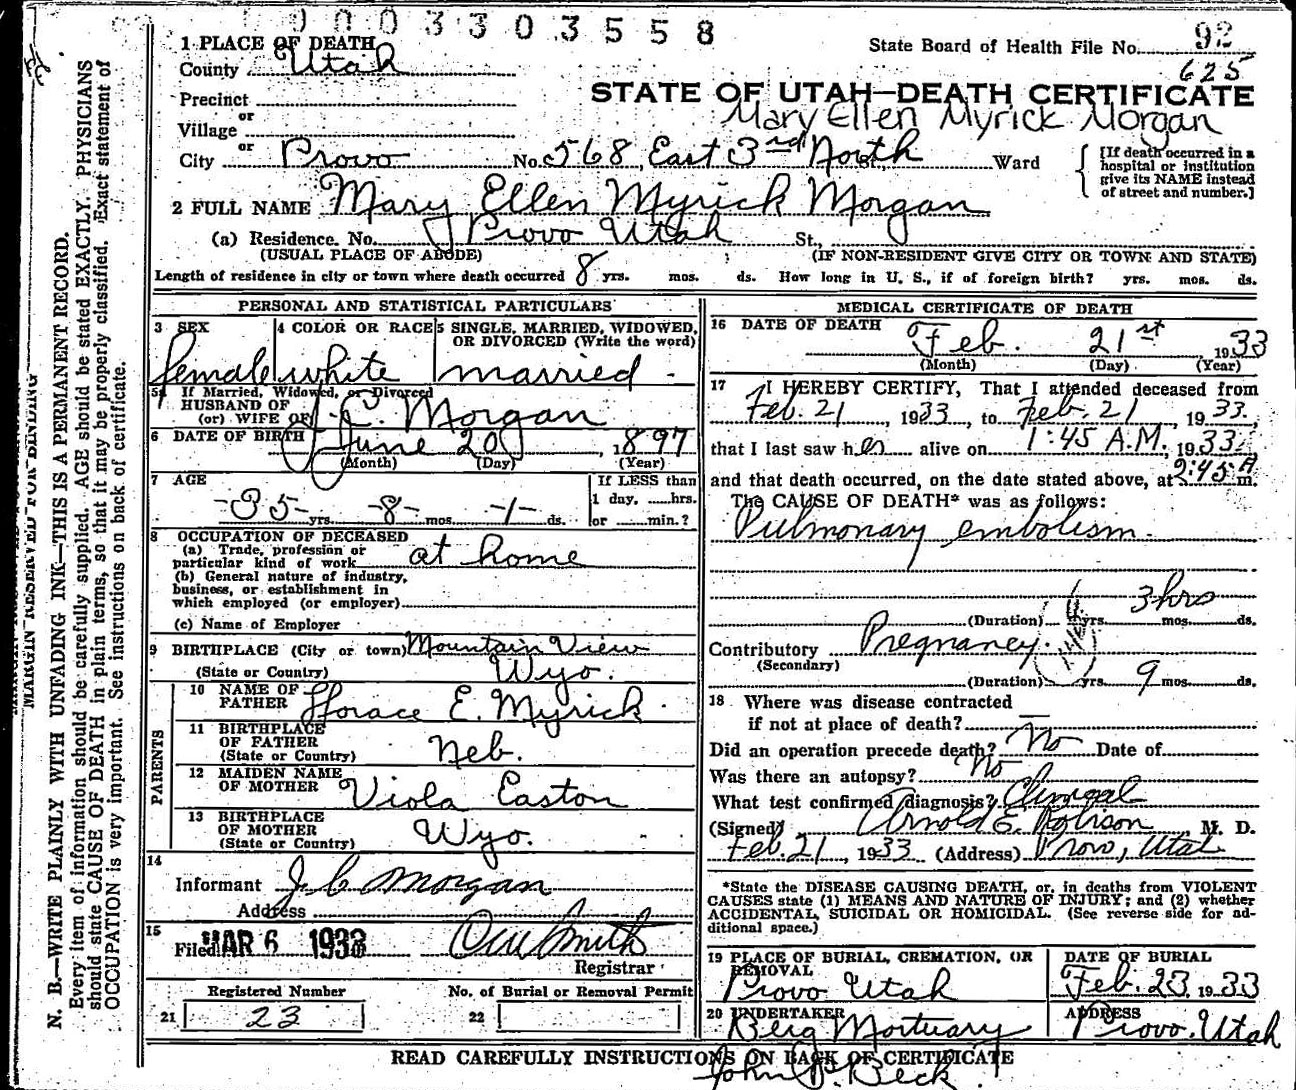 0003303558
1 PLACE OF DEATH
County Utah
Precinct
or
Village
or
City Provo No. 568 East 3rd North St., Ward
State Board of Health File No. 92
625
STATE OF UTAH—DEATH CERTIFICATE
Mary Ellen Myrick Morgan
[If death occurred in a
hospital or institution
give its NAME instead
of street and number.]
2 FULL NAME Mary Ellen Myrick Morgan
(a) Residence. No. Provo Utah St.,
(USUAL PLACE OF ABODE) (IF NON-RESIDENT GIVE CITY OR TOWN AND STATE)
Length of residence in city or town where death occurred 8 yrs. mos. ds. How long in U. S., if of foreign birth? yrs. mos. ds.
PERSONAL AND STATISTICAL PARTICULARS
3 SEX 4 COLOR OR RACE 5 SINGLE, MARRIED, WIDOWED,
OR DIVORCED (Write the word)
female white married
5a If Married, Widowed, or Divorced
HUSBAND OF
(or) WIFE OF J. C. Morgan
6 DATE OF BIRTH June 20, 1897
(Month) (Day) (Year)
7 AGE If LESS than
1 day, hrs.
-35- yrs. -8- mos. -1- ds. or min.?
8 OCCUPATION OF DECEASED
(a) Trade, profession or
particular kind of work at home
(b) General nature of industry,
business, or establishment in
which employed (or employer)
(c) Name of Employer
9 BIRTHPLACE (City or town) Mountain View
(State or Country) Wyo.
PARENTS
10 NAME OF
FATHER Horace E. Myrick
11 BIRTHPLACE
OF FATHER
(State or Country) Neb.
12 MAIDEN NAME
OF MOTHER Viola Easton
13 BIRTHPLACE
OF MOTHER
(State or Country) Wyo.
14
Informant J C Morgan
Address
15
Filed MAR 6 1933 Smith
Registrar
Registered Number No. of Burial or Removal Permit
21 23 22
MEDICAL CERTIFICATE OF DEATH
16 DATE OF DEATH
Feb. 21st, 1933
(Month) (Day) (Year)
17 I HEREBY CERTIFY, That I attended deceased from
Feb. 21 1933 to Feb. 21 1933.
that I last saw her alive on 1:45 A.M. 1933
and that death occurred, on the date stated above, at 2:45 A m.
The CAUSE OF DEATH* was as follows:
Pulmonary embolism.
3 hrs
(Duration) yrs. mos. ds.
Contributory Pregnancy.
(Secondary)
(Duration) yrs. 9 mos. ds.
18 Where was disease contracted
if not at place of death? —
Did an operation precede death? No Date of
Was there an autopsy? No
What test confirmed diagnosis? Clinical
(Signed) Arnold E. Robison M. D.
Feb. 21, 1933 (Address) Provo, Utah
*State the DISEASE CAUSING DEATH, or, in deaths from VIOLENT
CAUSES state (1) MEANS AND NATURE OF INJURY; and (2) whether
ACCIDENTAL, SUICIDAL OR HOMICIDAL. (See reverse side for ad-
ditional space.)
19 PLACE OF BURIAL, CREMATION, OR
REMOVAL
Provo Utah
DATE OF BURIAL
Feb. 23, 1933
20 UNDERTAKER
Berg Mortuary
ADDRESS
Provo. Utah
READ CAREFULLY INSTRUCTIONS ON BACK OF CERTIFICATE
John J. Beck
MARGIN RESERVED FOR BINDING
N. B.—WRITE PLAINLY WITH UNFADING INK—THIS IS A PERMANENT RECORD.
Every item of information should be carefully supplied. AGE should be stated EXACTLY. PHYSICIANS
should state CAUSE OF DEATH in plain terms, so that it may be properly classified. Exact statement of
OCCUPATION is very important. See instructions on back of certificate.